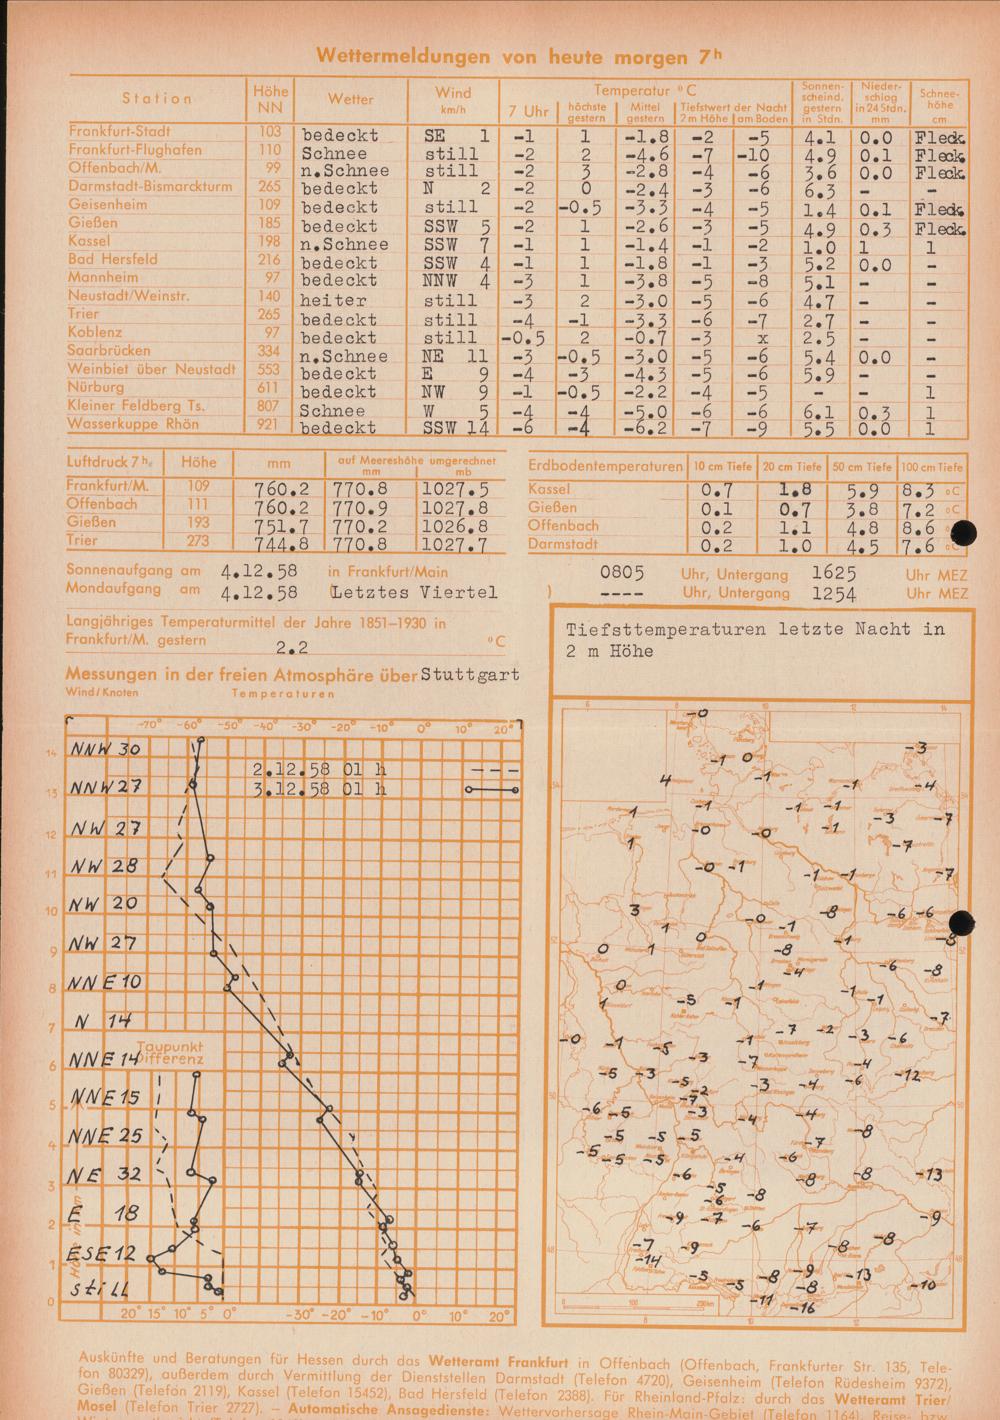 Wettermeldungen von heute morgen 7h
Station Höhe NN Wetter Wind km/h Temperatur °C Sonnen-scheind. gestern in Stdn. Nieder-schlag in 24 Stdn. mm Schnee-höhe cm
7 Uhr höchste gestern Mittel gestern Tiefstwert der Nacht 2m Höhe am Boden
Frankfurt-Stadt 103 bedeckt SE 1 -1 1 -1.8 -2 -5 4.1 0.0 Fleck.
Frankfurt-Flughafen 110 Schnee still -2 2 -4.6 -7 -10 4.9 0.1 Fleck.
Offenbach/M. 99 n.Schnee still -2 3 -2.8 -4 -6 3.6 0.0 Fleck.
Darmstadt-Bismarckturm 265 bedeckt N 2 -2 0 -2.4 -3 -6 6.3 - -
Geisenheim 109 bedeckt still -2 -0.5 -3.3 -4 -5 1.4 0.1 Fleck.
Gießen 185 bedeckt SSW 5 -2 1 -2.6 -3 -5 4.9 0.3 Fleck.
Kassel 198 n.Schnee SSW 7 -1 1 -1.4 -1 -2 1.0 1 1
Bad Hersfeld 216 bedeckt SSW 4 -1 1 -1.8 -1 -3 5.2 0.0 -
Mannheim 97 bedeckt NNW 4 -3 1 -3.8 -5 -8 5.1 - -
Neustadt/Weinstr. 140 heiter still -3 2 -3.0 -5 -6 4.7 - -
Trier 265 bedeckt still -4 -1 -3.3 -6 -7 2.7 - -
Koblenz 97 bedeckt still -0.5 2 -0.7 -3 x 2.5 - -
Saarbrücken 334 n.Schnee NE 11 -3 -0.5 -3.0 -5 -6 5.4 0.0 -
Weinbiet über Neustadt 553 bedeckt E 9 -4 -3 -4.3 -5 -6 5.9 - -
Nürburg 611 bedeckt NW 9 -1 -0.5 -2.2 -4 -5 - - 1
Kleiner Feldberg Ts. 807 Schnee W 5 -4 -4 -5.0 -6 -6 6.1 0.3 1
Wasserkuppe Rhön 921 bedeckt SSW 14 -6 -4 -6.2 -7 -9 5.5 0.0 1
Luftdruck 7h. Höhe mm auf Meereshöhe umgerechnet mm mb
Frankfurt/M. 109 760.2 770.8 1027.5
Offenbach 111 760.2 770.9 1027.8
Gießen 193 751.7 770.2 1026.8
Trier 273 744.8 770.8 1027.7
Erdbodentemperaturen 10 cm Tiefe 20 cm Tiefe 50 cm Tiefe 100 cm Tiefe
Kassel 0.7 1.8 5.9 8.3 °C
Gießen 0.1 0.7 3.8 7.2 °C
Offenbach 0.2 1.1 4.8 8.6
Darmstadt 0.2 1.0 4.5 7.6 °C
Sonnenaufgang am 4.12.58 in Frankfurt/Main 0805 Uhr, Untergang 1625 Uhr MEZ
Mondaufgang am 4.12.58 (Letztes Viertel ) ---- Uhr, Untergang 1254 Uhr MEZ
Langjähriges Temperaturmittel der Jahre 1851-1930 in
Frankfurt/M. gestern 2.2 °C
Messungen in der freien Atmosphäre über Stuttgart
Wind/Knoten Temperaturen
-70° -60° -50° -40° -30° -20° -10° 0° 10° 20°
14 NNW 30
2.12.58 01 h - - -
3.12.58 01 h
13 NNW 27
12 NW 27
11 NW 28
10 NW 20
9 NW 27
8 NNE 10
7 N 14
Taupunkt
Differenz
6 NNE 14
5 NNE 15
4 NNE 25
3 NE 32
2 E 18
1 ESE 12
0 still
20° 15° 10° 5° 0° -30° -20° -10° 0° 10° 20°
Tiefsttemperaturen letzte Nacht in
2 m Höhe
6 8 10 12 14
-0
-3
-1 0
4 -1 -1 -4
1 -1 -1 -1 -3 -7
-0 -0 -1
1 -7
-0 -1 -1 -1 -7
3 -0 -8 -6 -6
1 -1
0 1 0 -8 -1 -8
-4 -6 -8
0 -1 -1
1 -5 -1 -1
-7
-0 -1 -5 -1 -7 -2 -3 -6
-3 -7 -4
-5 -3 -5 -2 -3 -4 -6 -12
-6 -5 -7 -3 -4 -4
-5 -5 -5 -7 -8
-5 -5 -5 -4 -6
-6 -8 -8 -13
-5 -6 -8
-9 -7 -6 -7 -9
-7 -9 -8 -8
-14
-5 -5 -8 -9 -8 -13 -10
-11 -16
0 100 200km
Auskünfte und Beratungen für Hessen durch das Wetteramt Frankfurt in Offenbach (Offenbach, Frankfurter Str. 135, Tele-
fon 80329), außerdem durch Vermittlung der Dienststellen Darmstadt (Telefon 4720), Geisenheim (Telefon Rüdesheim 9372),
Gießen (Telefon 2119), Kassel (Telefon 15452), Bad Hersfeld (Telefon 2388). Für Rheinland-Pfalz: durch das Wetteramt Trier/
Mosel (Telefon Trier 2727). – Automatische Ansagedienste: Wettervorhersage Rhein-Main-Gebiet (Telefon 1164), Reise-